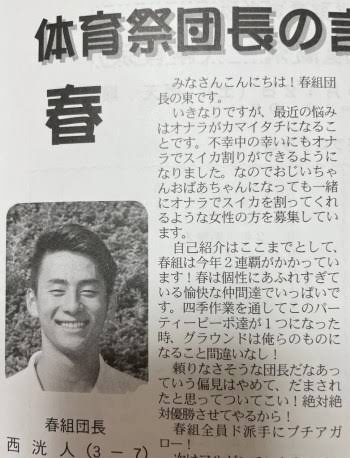 体育祭団長の
春
みなさんこんにちは!春組団
長の東です。
いきなりですが、最近の悩み
はオナラがカマイタチになるこ
とです。不幸中の幸いにもオナ
ラでスイカ割りができるように
なりました。なのでおじいちゃ
んおばあちゃんになっても一緒
にオナラでスイカを割ってくれ
るような女性の方を募集してい
ます。
自己紹介はここまでとして、
春組は今年2連覇がかかってい
ます!春は個性にあふれすぎて
いる愉快な仲間達でいっぱいで
す。四季作業を通してこのパー
ティーピーポ達が1つになった
時、グラウンドは俺らのものに
なること間違いなし!
頼りなさそうな団長だなあっ
ていう偏見はやめて、だまされ
たと思ってついてこい!絶対絶
対優勝させてやるから!
春組全員ド派手にブチアガ
ロー!
春組団長
西 洸 人(3-7)